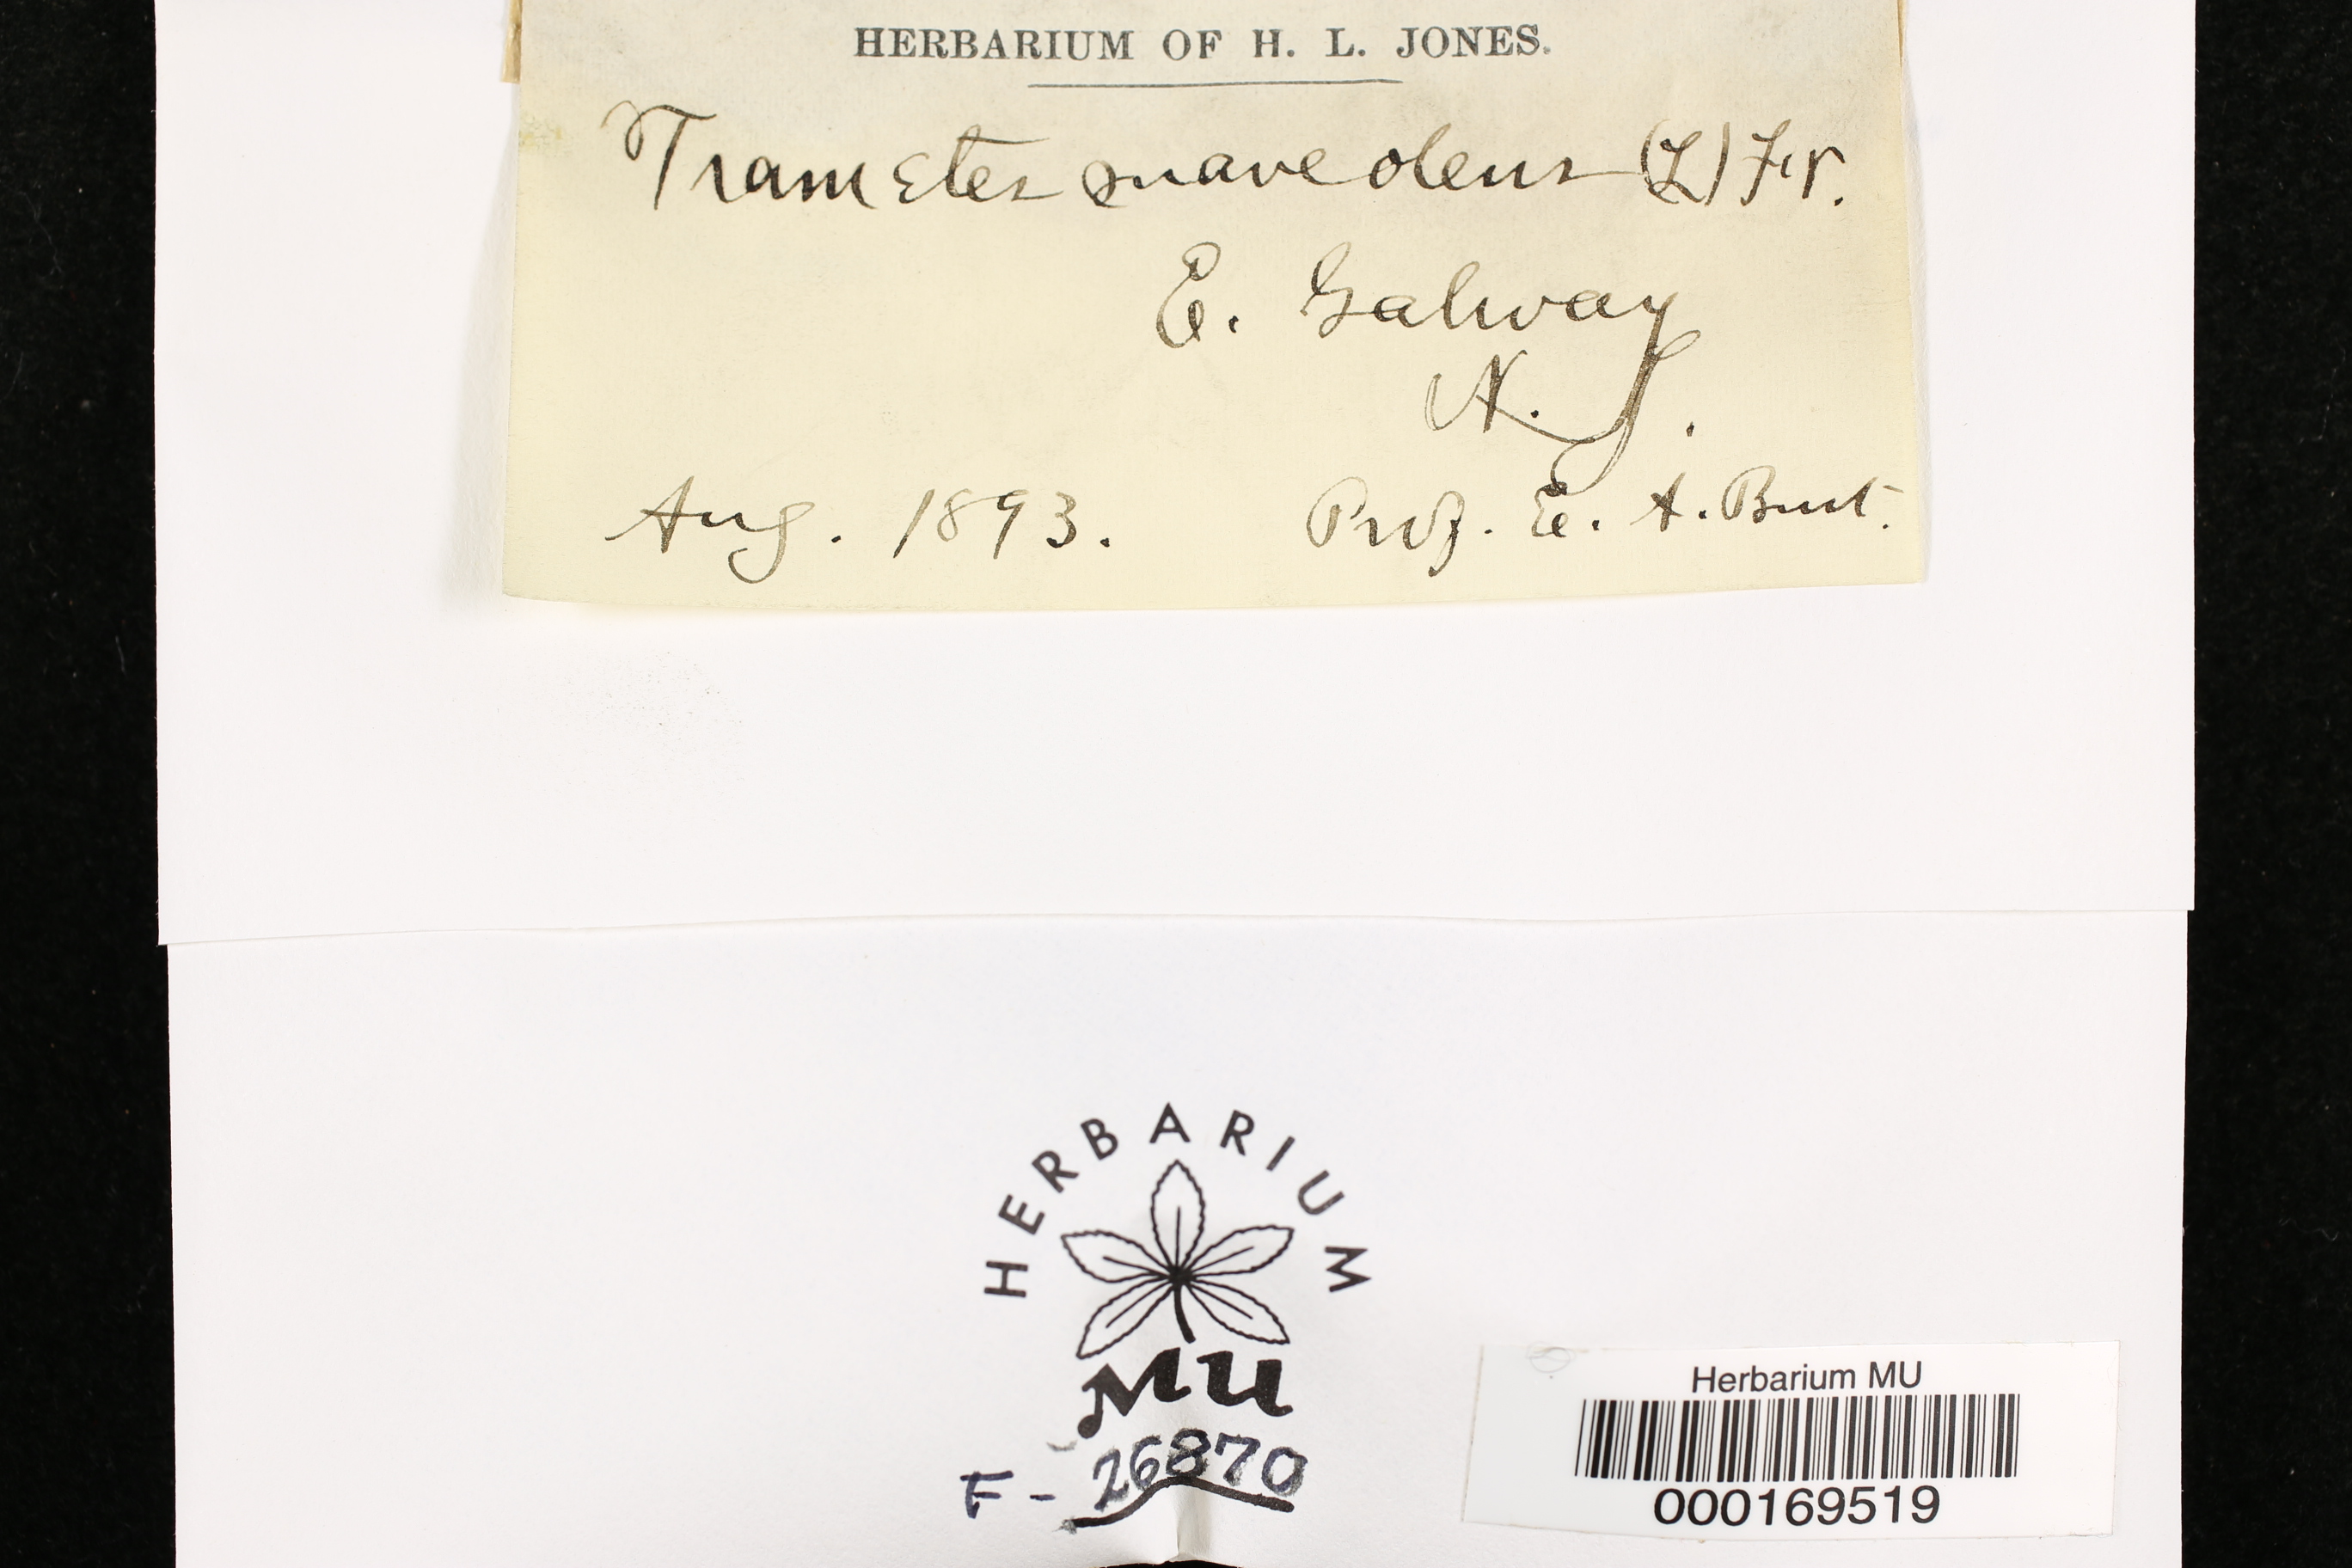 HERBARIUM OF H. L. JONES.
Trametes suaveolens (L) Fr.
E. Galway
N. Y.
Aug. 1893. Prof. E. A. Burt.
HERBARIUM
MU
F- 26870
Herbarium MU
000169519